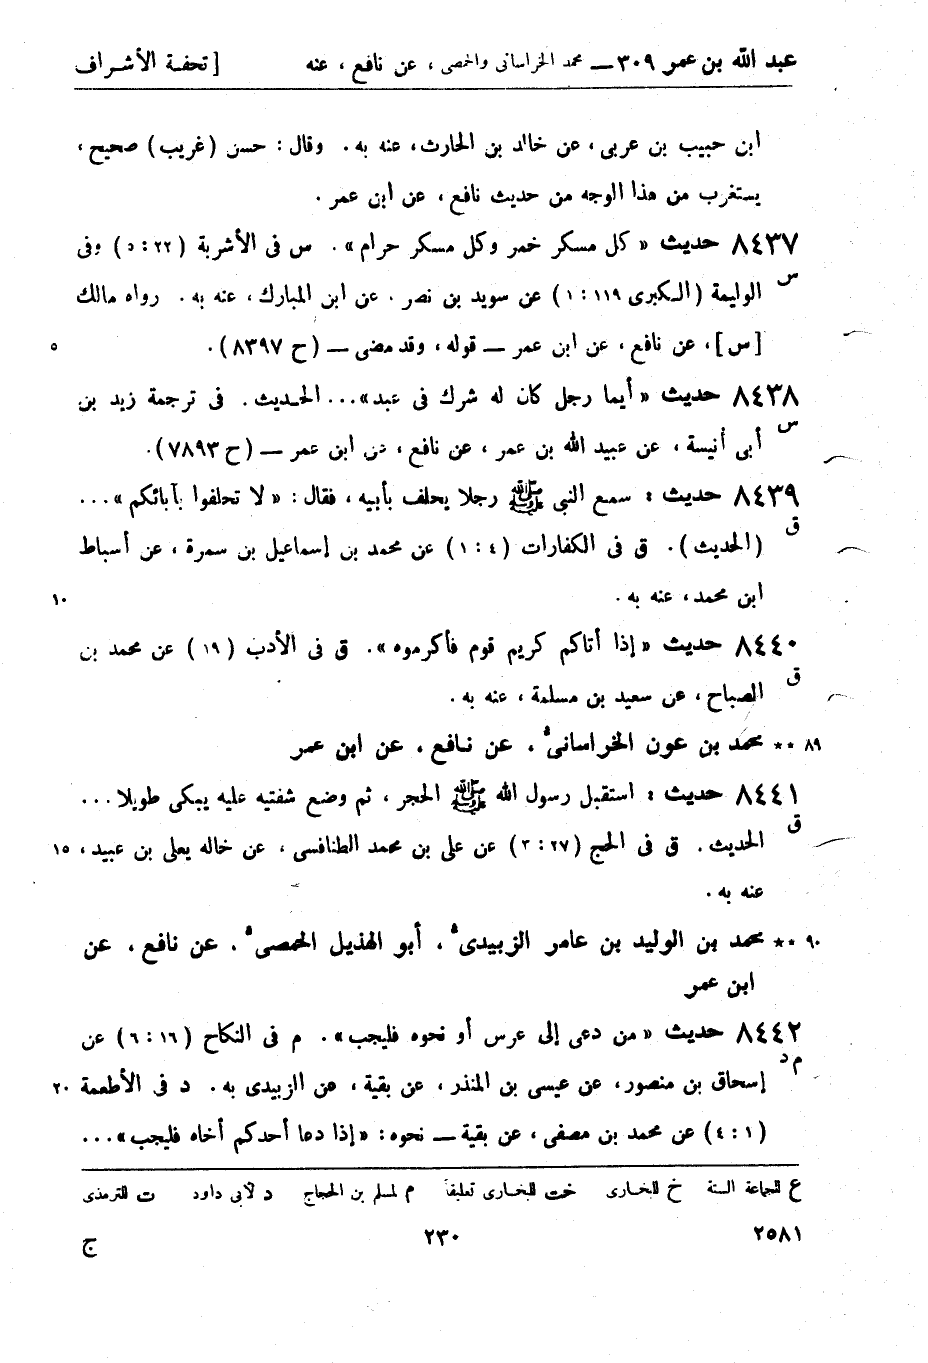 عبد الله بن عمر ٣٠٩ — محمد الخراسانى والحمصى ، عن نافع ، عنه [ تحفة الأشراف
ابن حبيب بن عربى ، عن خالد بن الحارث ، عنه به . وقال : حسن (غريب) صحيح ،
يستغرب من هذا الوجه من حديث نافع ، عن ابن عمر .
٨٤٣٧ حديث « كل مسكر خمر وكل مسكر حرام » . س فى الأشربة (٢٢ : ٥) وفى
س الوليمة (الكبرى ١١٩ : ١) عن سويد بن نصر . عن ابن المبارك ، عنه به . رواه مالك
[س] ، عن نافع ، عن ابن عمر — قوله ، وقد مضى — (ح ٨٣٩٧) . ٥
٨٤٣٨ حديث « أيما رجل كان له شرك فى عبد » ... الحديث . فى ترجمة زيد بن
س أبى أنيسة ، عن عبيد الله بن عمر ، عن نافع ، عن ابن عمر — (ح ٧٨٩٣) .
٨٤٣٩ حديث : سمع النبى ﷺ رجلا يحلف بأبيه ، فقال : « لا تحلفوا بآبائكم » ...
ق (الحديث) . ق فى الكفارات (٤ : ١) عن محمد بن إسماعيل بن سمرة ، عن أسباط
ابن محمد ، عنه به . ١٠
٨٤٤٠ حديث « إذا أتاكم كريم قوم فأكرموه » . ق فى الأدب (١٩) عن محمد بن
ق الصباح ، عن سعيد بن مسلمة ، عنه به .
٨٩ ** محمد بن عون الخراسانى ، عن نافع ، عن ابن عمر
٨٤٤١ حديث : استقبل رسول الله ﷺ الحجر ، ثم وضع شفتيه عليه يبكى طويلا ...
ق الحديث . ق فى الحج (٢٧ : ٢) عن على بن محمد الطنافسى ، عن خاله يعلى بن عبيد ، ١٥
عنه به .
٩٠ ** محمد بن الوليد بن عامر الزبيدى ، أبو الهذيل الحمصى ، عن نافع ، عن
ابن عمر
٨٤٤٢ حديث « من دعى إلى عرس أو نحوه فليجب » . م فى النكاح (١٦ : ٦) عن
م د إسحاق بن منصور ، عن عيسى بن المنذر ، عن بقية ، عن الزبيدى به . د فى الأطعمة ٢٠
(١ : ٤) عن محمد بن مصفى ، عن بقية — نحوه : « إذا دعا أحدكم أخاه فليجب » ...
ع للجماعة الستة خ للبخارى خت للبخارى تعليقاً م لمسلم بن الحجاج د لأبى داود ت للترمذى
٢٥٨١ ٢٣٠ ج